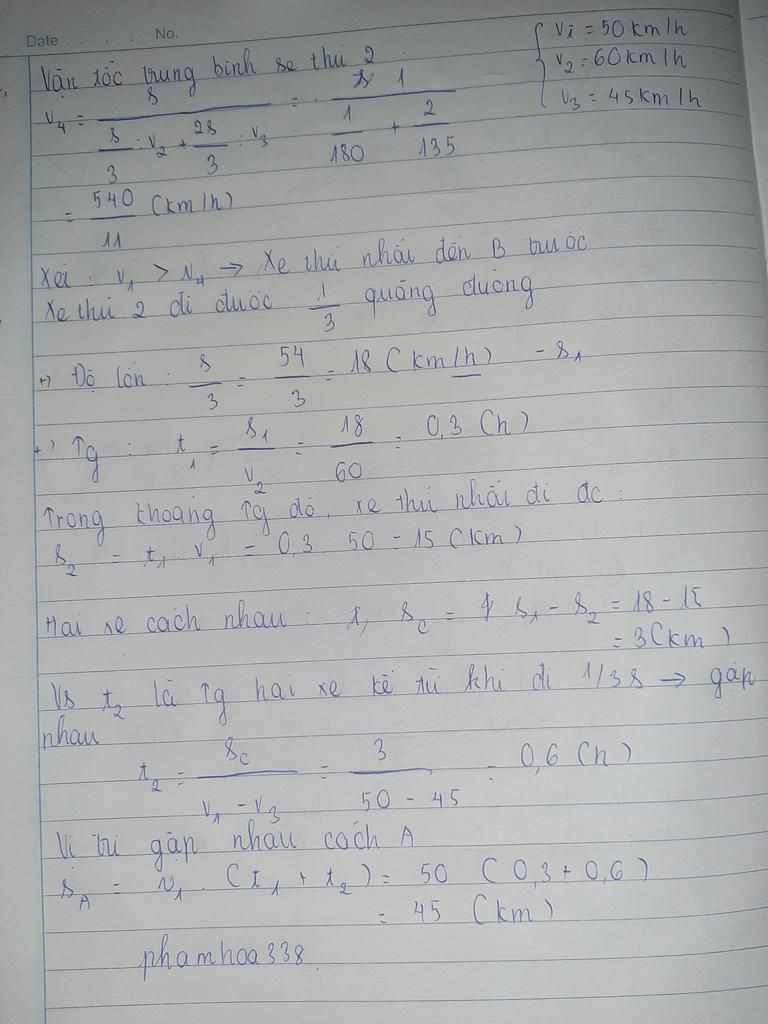 Date No.
Vận tốc trung bình xe thứ 2
v₁ = 50 km/h
v₂ = 60 km/h
v₃ = 45 km/h
v₄ = s / (s/3 : v₂ + 2s/3 : v₃) = 1 / (1/180 + 2/135)
= 540/11 (km/h)
Xét : v₁ > v₄ → Xe thứ nhất đến B trước
Xe thứ 2 đi được 1/3 quãng đường
+) Độ lớn : s/3 = 54/3 = 18 (km/h) - s₁
+) Tg : t₁ = s₁/v₂ = 18/60 = 0,3 (h)
Trong khoảng Tg đó, xe thứ nhất đi đc :
s₂ = t₁ . v₁ = 0,3 50 = 15 (km)
Hai xe cách nhau : s_c = s₁ - s₂ = 18 - 15
= 3 (km)
Vs t₂ là Tg hai xe kể từ khi đi 1/3 s → gặp
nhau
t₂ = s_c / (v₁ - v₃) = 3 / (50 - 45) = 0,6 (h)
Vị trí gặp nhau cách A
s_A = v₁ . (t₁ + t₂) = 50 (0,3 + 0,6)
= 45 (km)
phamhoa338